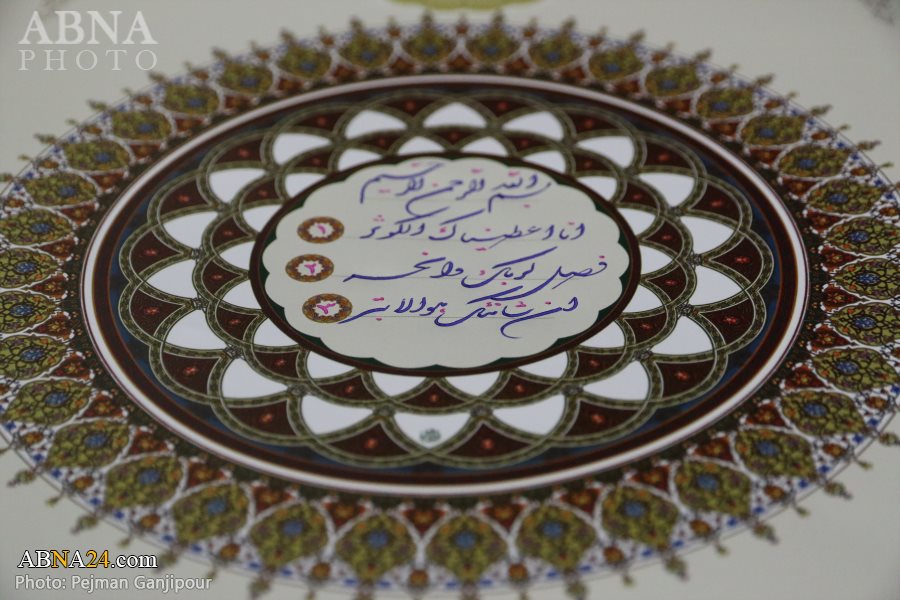 ABNA
PHOTO
بسم الله الرحمن الرحیم
انا اعطیناک الکوثر ۱
فصل لربک وانحر ۲
ان شانئک هوالابتر ۳
ABNA24.com
Photo: Pejman Ganjipour